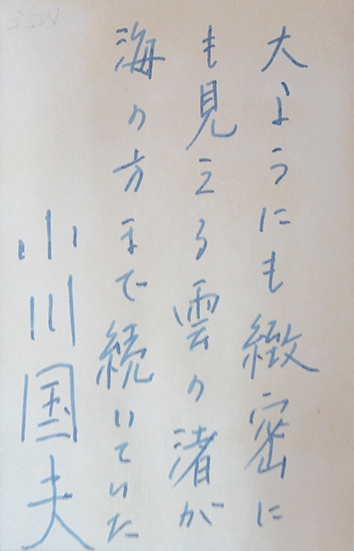 大ようにも緻密に
も見える雲の渚が
海の方まで続いていた
小川国夫